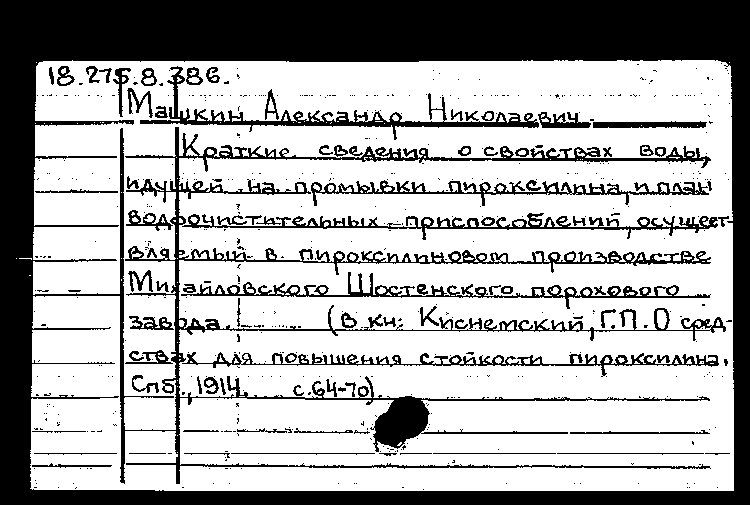 18.275.8.386.
Машкин, Александр Николаевич.
Краткие сведения о свойствах воды,
идущей на промывки пироксилина, и план
водоочистительных приспособлений, осущест-
вляемый в пироксилиновом производстве
Михайловского Шостенского порохового
завода. (В кн: Киснемский, Г.П. О сред-
ствах для повышения стойкости пироксилина.
Спб., 1914. с.64-70).